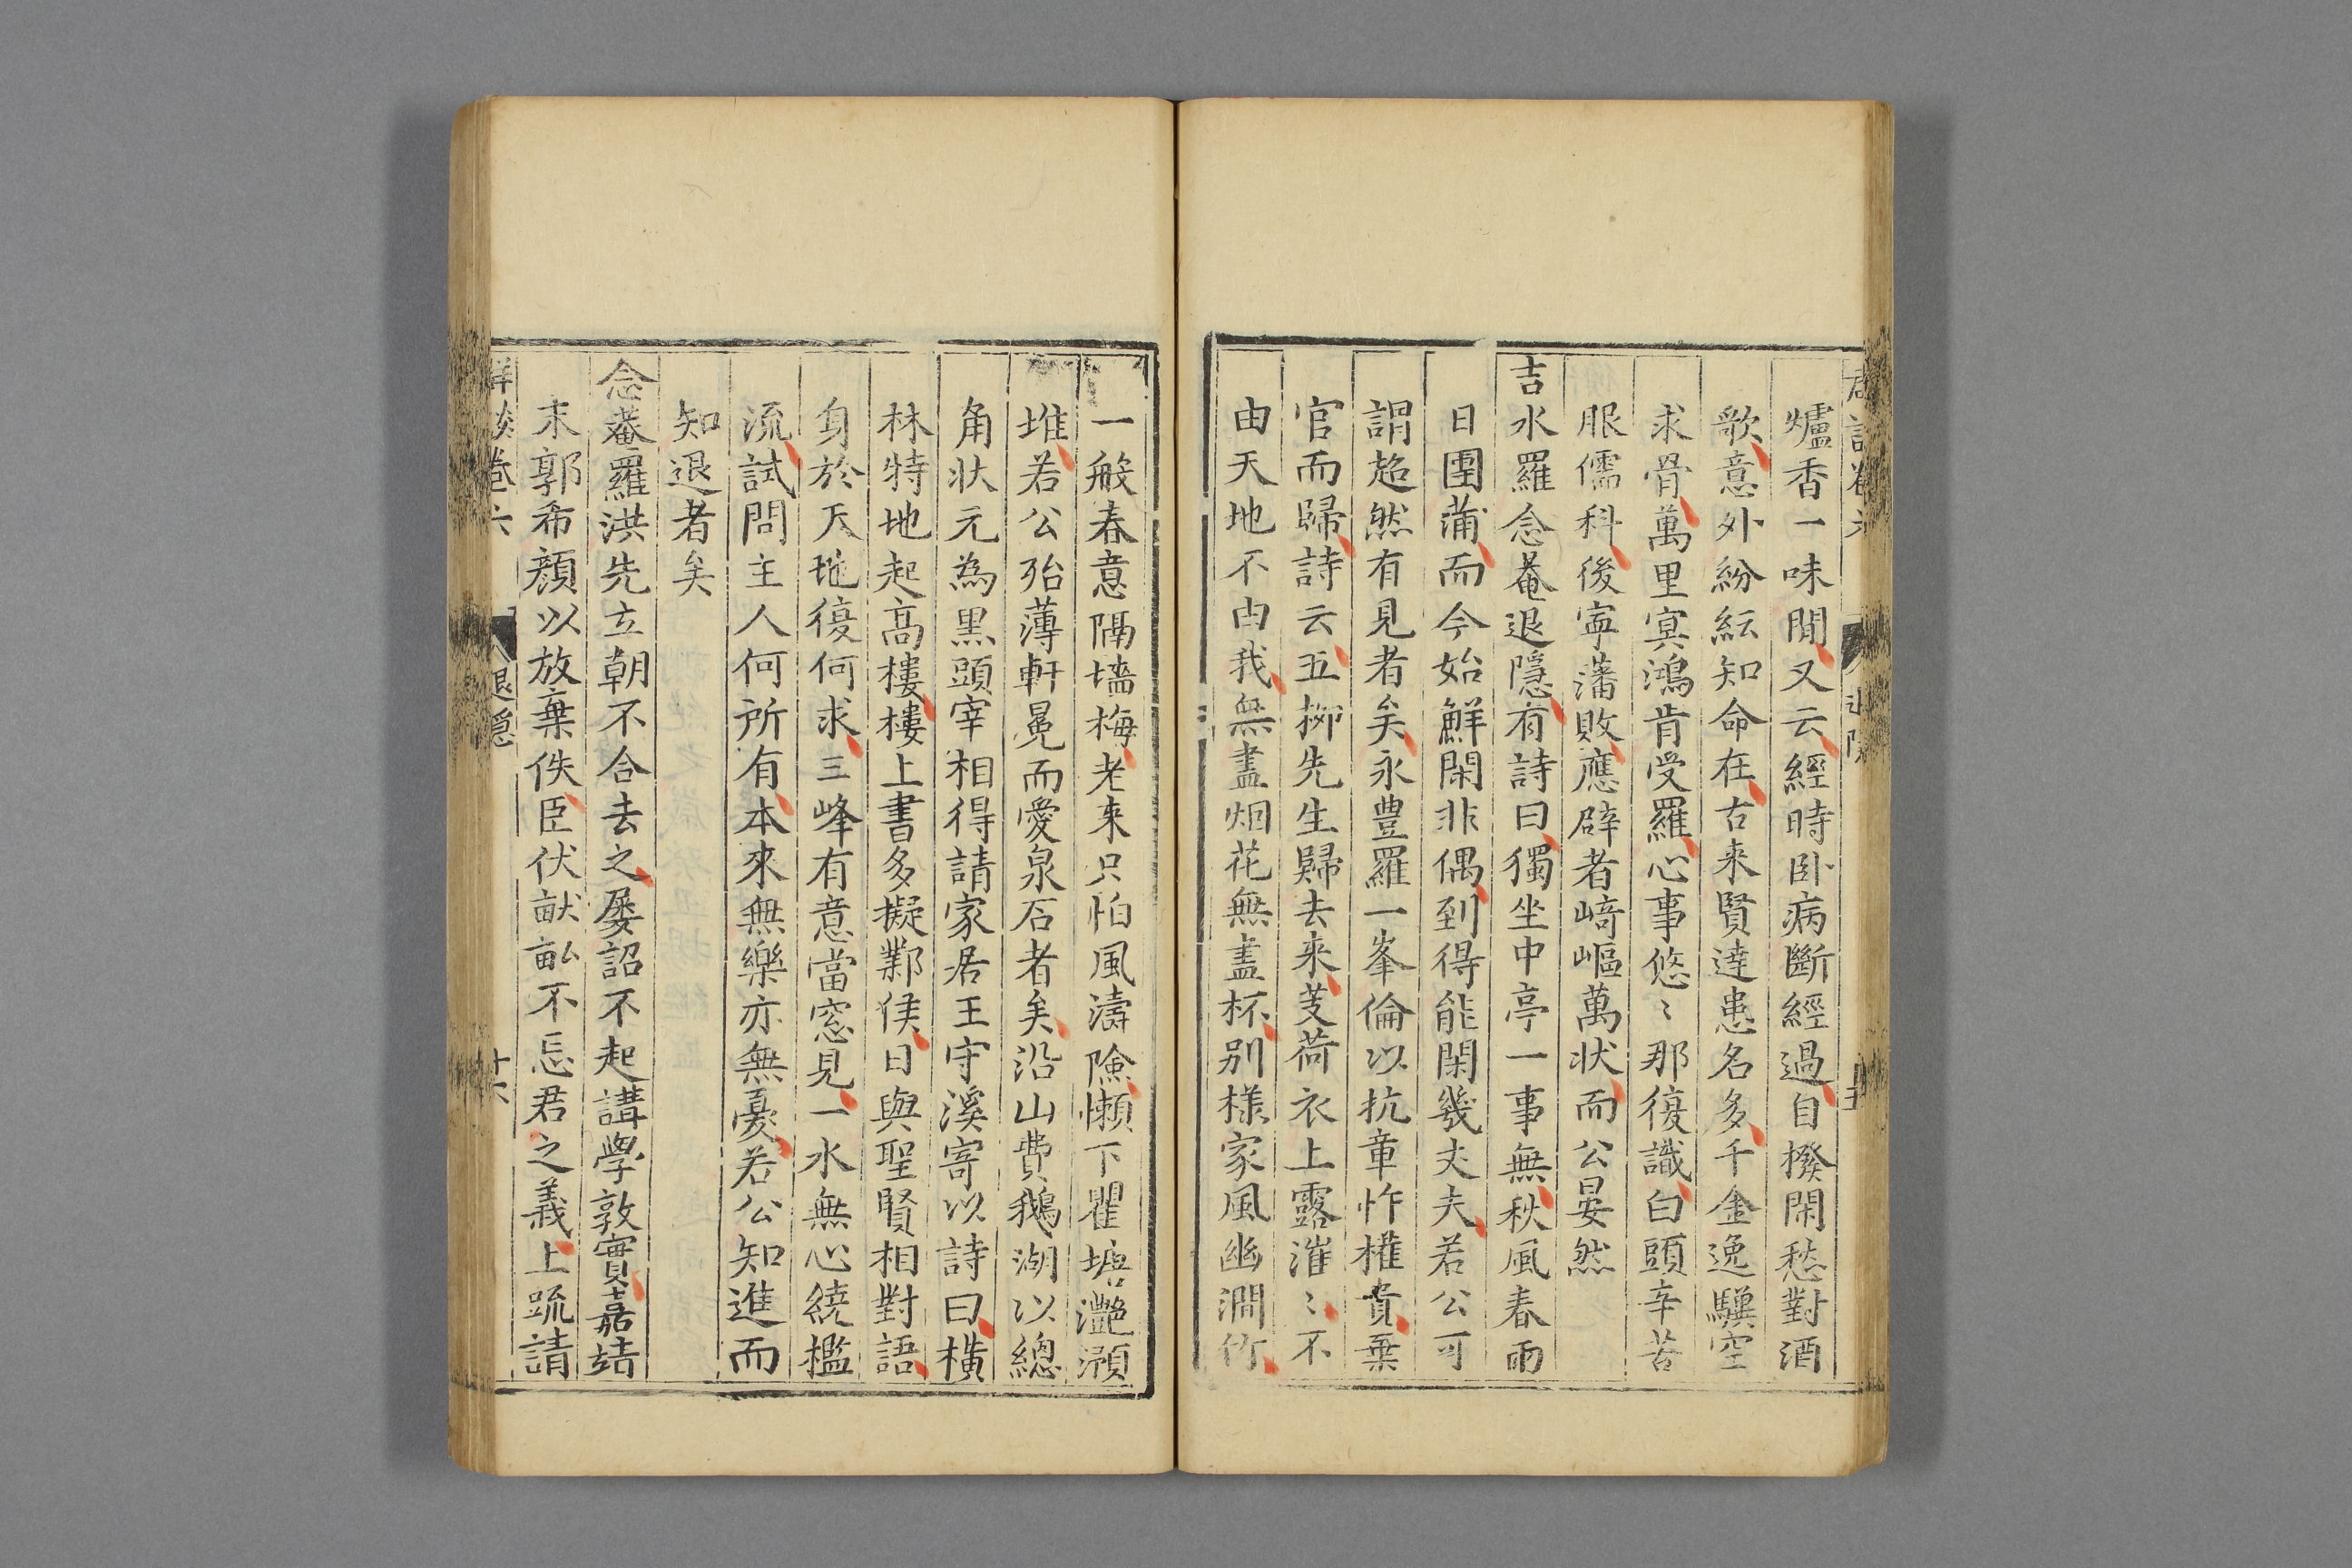 爐香一味閒又云經時卧病斷經過自撥閑愁對酒
歌意外紛紜知命在古来賢達患名多千金逸驥空
求骨萬里㝠鴻肯受羅心事悠〻那復識白頭辛苦
服儒科後寧藩敗應辟者﨑嶇萬状而公晏然
吉水羅念菴退隱有詩曰獨坐中亭一事無秋風春雨
日團蒲而今始鮮閑非偶到得能閑幾丈夫若公可
謂超然有見者矣永豊羅一峯倫以抗章忤權貴棄
官而歸詩云五栁先生歸去来芰荷衣上露漼〻不
由天地不由我無盡烟花無盡杯别樣家風幽澗竹
一般春意隔墻梅老来只怕風濤險懶下瞿塘灧澦
堆若公殆薄軒冕而愛泉石者矣沿山費鵝湖以總
角状元為黒頭宰相得請家居王守溪寄以詩曰横
林特地起高樓樓上書多擬鄴侯日與聖賢相對語
身於天地復何求三峰有意當窓見一水無心繞檻
流試問主人何所有本來無樂亦無憂若公知進而
知退者矣
念菴羅洪先立朝不合去之屡詔不起講學敦實嘉靖
末郭希顔以放棄佚臣伏畎畝不忘君之義上疏請
卷六
退隱
十六